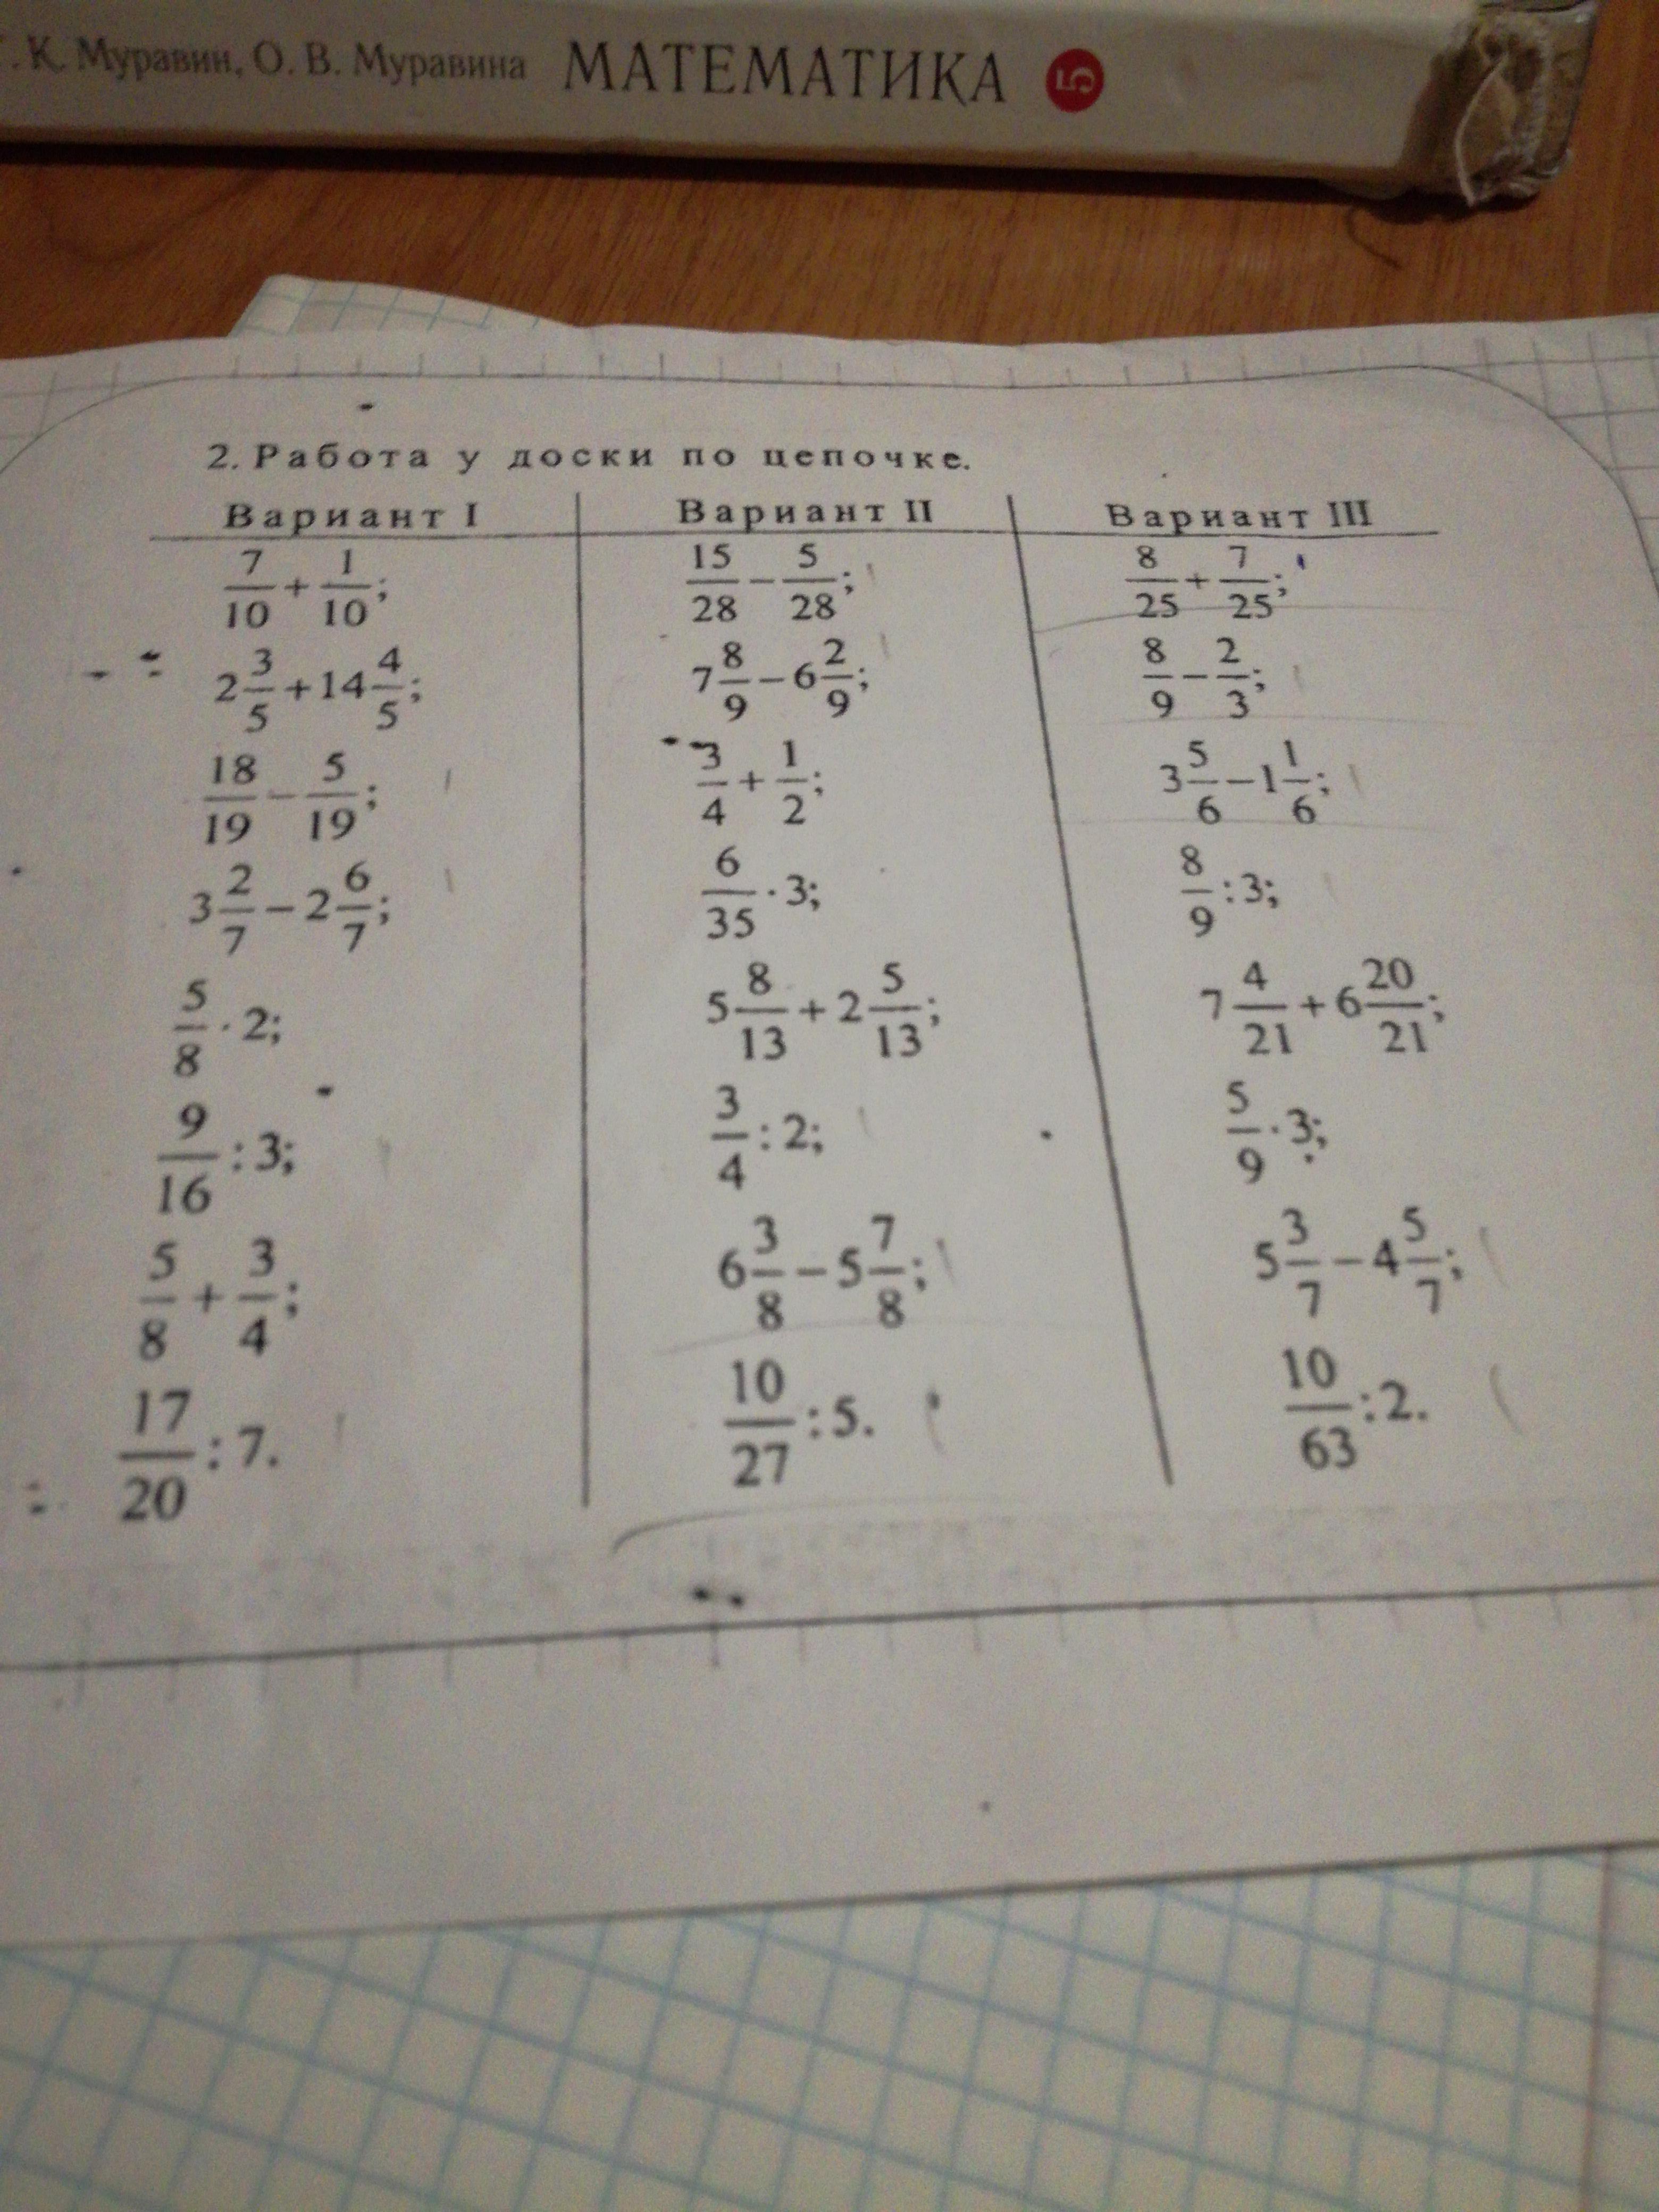 . К. Муравин, О. В. Муравина МАТЕМАТИКА 5
2. Работа у доски по цепочке.
Вариант I | Вариант II | Вариант III
7/10 + 1/10; | 15/28 − 5/28; | 8/25 + 7/25;
2 3/5 + 14 4/5; | 7 8/9 − 6 2/9; | 8/9 − 2/3;
18/19 − 5/19; | 3/4 + 1/2; | 3 5/6 − 1 1/6;
3 2/7 − 2 6/7; | 6/35 · 3; | 8/9 : 3;
5/8 · 2; | 5 8/13 + 2 5/13; | 7 4/21 + 6 20/21;
9/16 : 3; | 3/4 : 2; | 5/9 · 3;
5/8 + 3/4; | 6 3/8 − 5 7/8; | 5 3/7 − 4 5/7;
17/20 : 7. | 10/27 : 5. | 10/63 : 2.